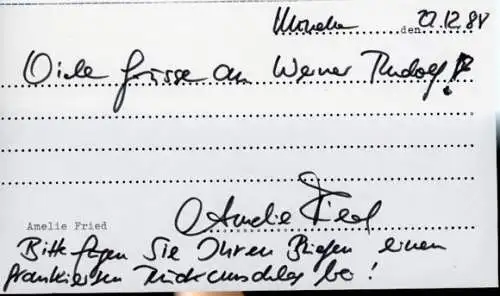 München den 22.12.88
Viele Grüsse an Werner Rudolf!
Amelie Fried
Amelie Fried
Bitte fügen Sie Ihren Briefen einen
frankierten Rückumschlag bei!